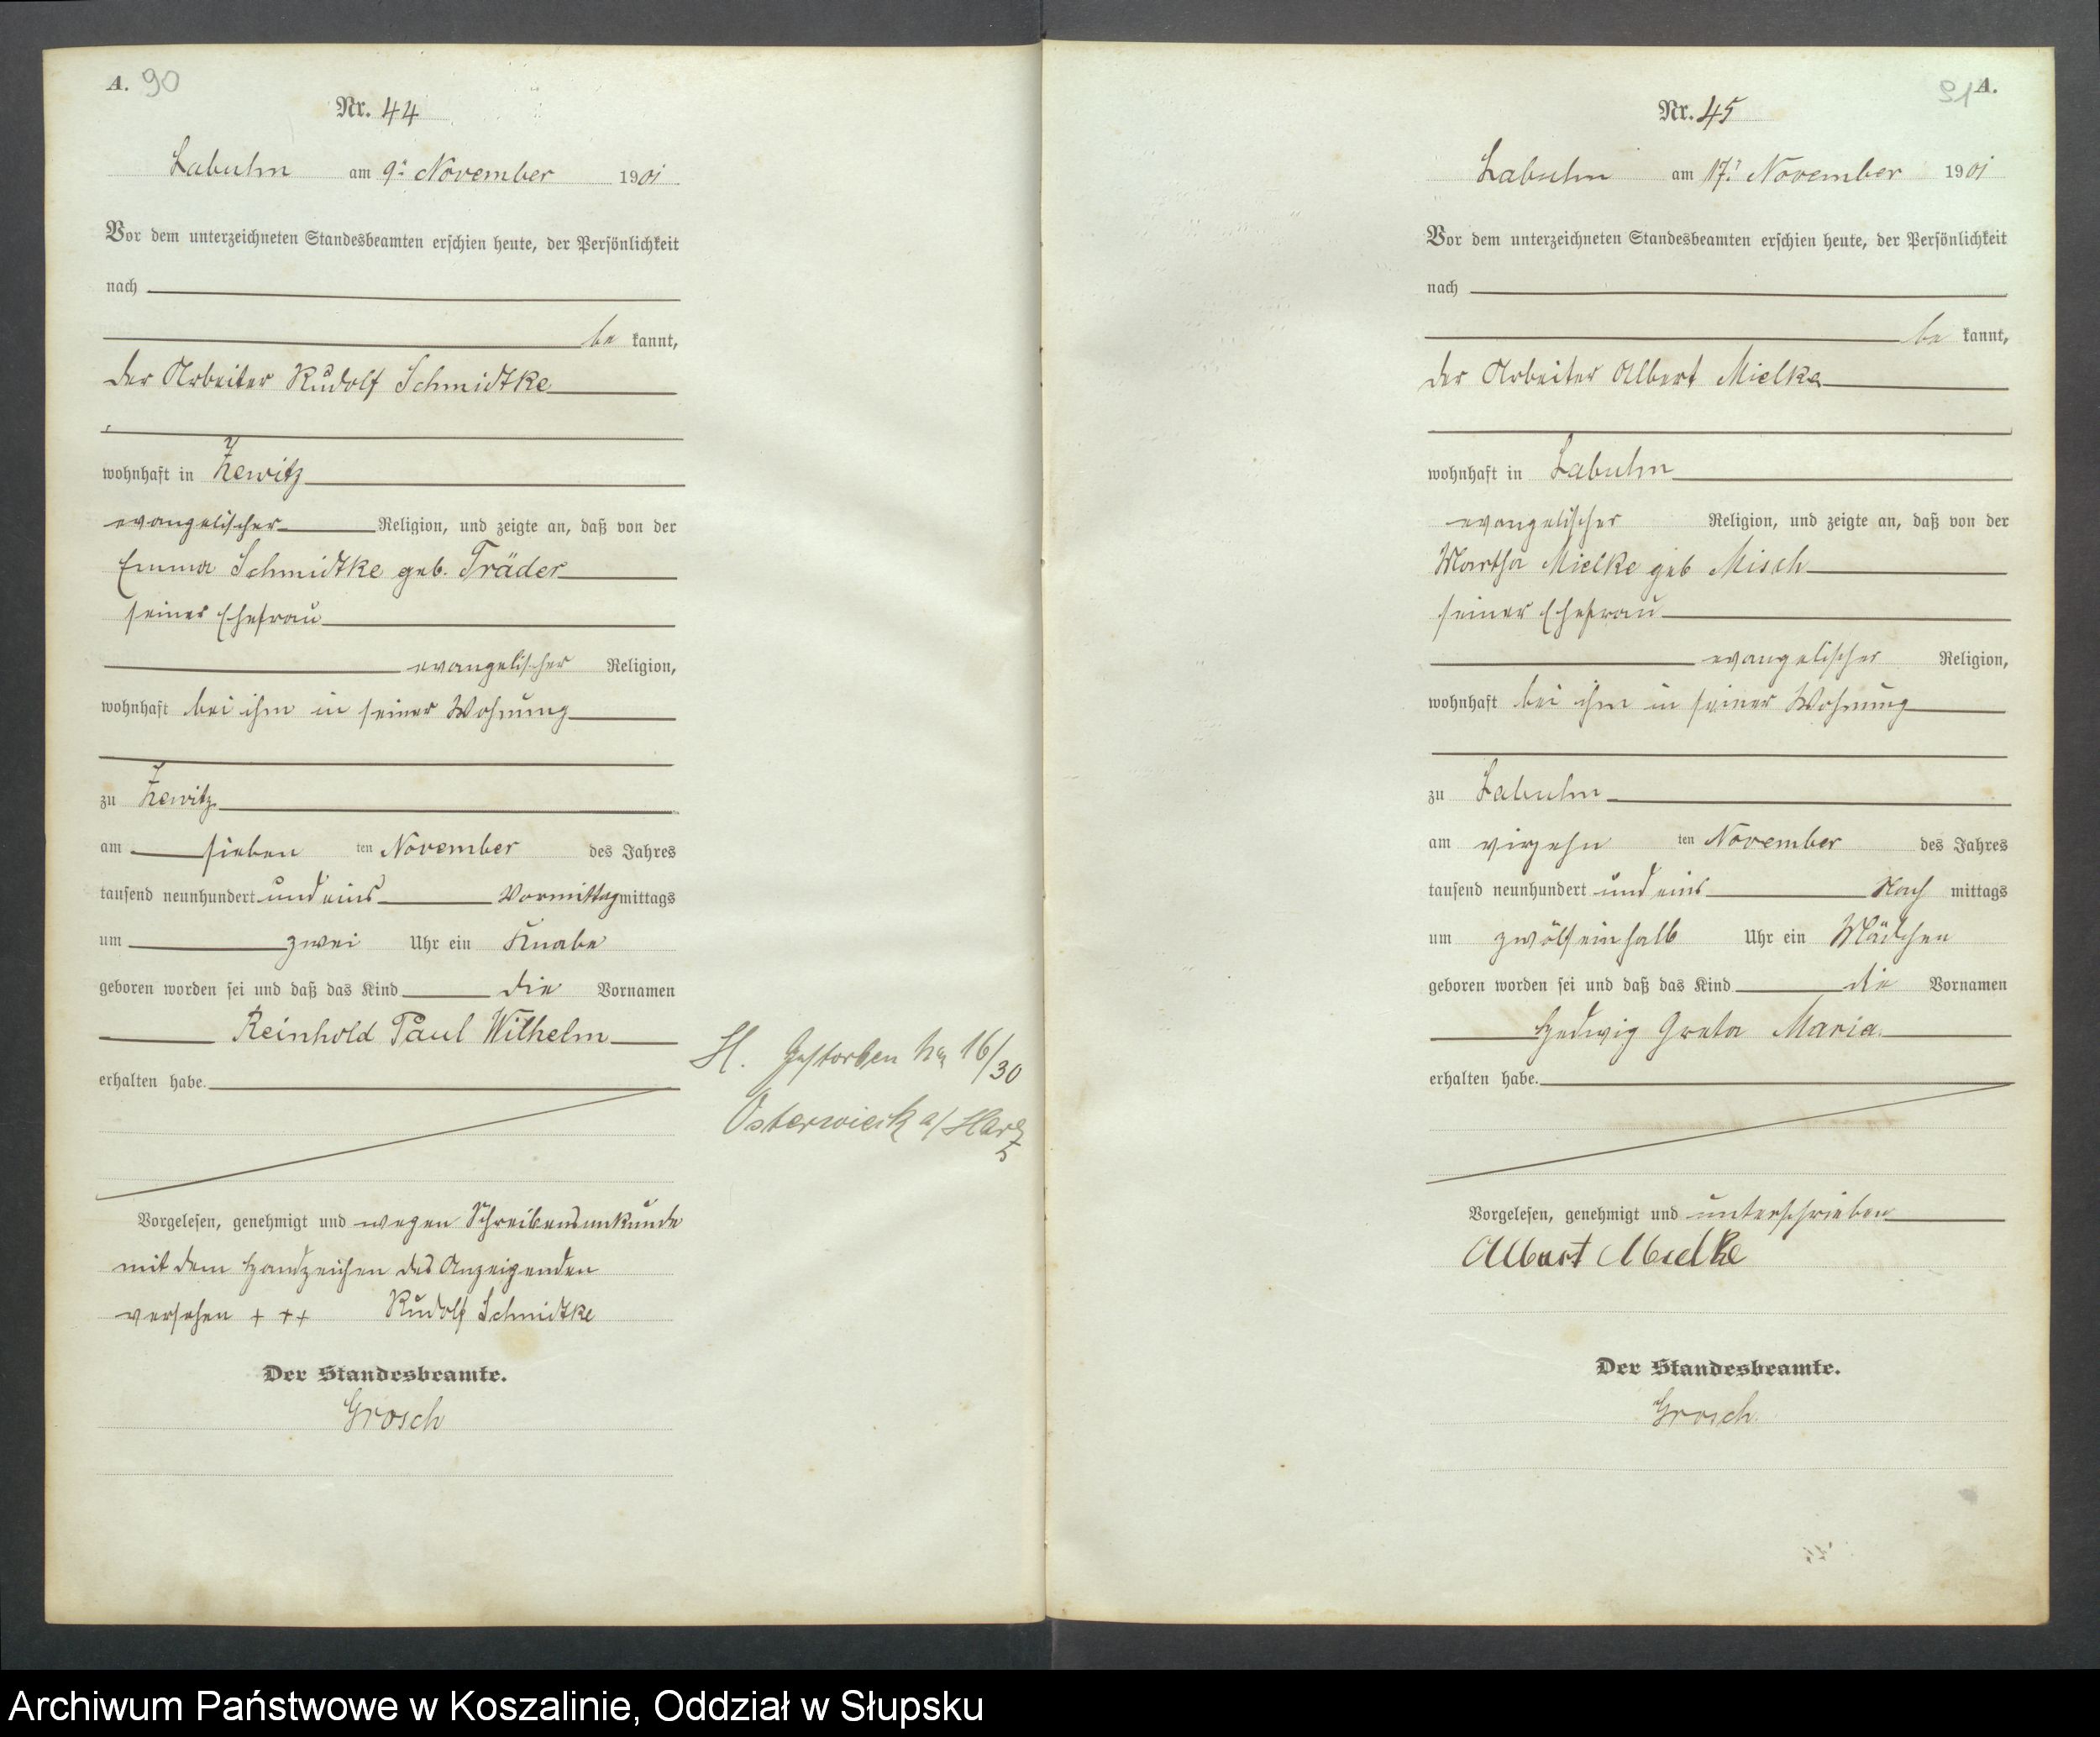 A. 90
Nr. 44
Labuhn am 9. November 1901
Vor dem unterzeichneten Standesbeamten erschien heute, der Persönlichkeit
nach
be kannt,
der Arbeiter Rudolf Schmidtke
wohnhaft in Zewitz
evangelischer Religion, und zeigte an, daß von der
Emma Schmidtke geb. Träder
seiner Ehefrau
evangelischer Religion,
wohnhaft bei ihm in seiner Wohnung
zu Zewitz
am sieben ten November des Jahres
tausend neunhundert und eins Vormittag mittags
um zwei Uhr ein Knabe
geboren worden sei und daß das Kind die Vornamen
Reinhold Paul Wilhelm
erhalten habe.
Vorgelesen, genehmigt und wegen Schreibensunkunde
mit dem Handzeichen des Anzeigenden
versehen + + + Rudolf Schmidtke
Der Standesbeamte.
Grosch
H. Gestorben 16/30
Osterwieck a/Harz
91 A.
Nr. 45
Labuhn am 17. November 1901
Vor dem unterzeichneten Standesbeamten erschien heute, der Persönlichkeit
nach
be kannt,
der Arbeiter Albert Mielke
wohnhaft in Labuhn
evangelischer Religion, und zeigte an, daß von der
Martha Mielke geb Misch
seiner Ehefrau
evangelischer Religion,
wohnhaft bei ihm in seiner Wohnung
zu Labuhn
am virzehn ten November des Jahres
tausend neunhundert und eins Nach mittags
um zwölfeinhalb Uhr ein Mädchen
geboren worden sei und daß das Kind die Vornamen
Hedwig Greta Maria
erhalten habe.
Vorgelesen, genehmigt und unterschrieben
Albert Mielke
Der Standesbeamte.
Grosch.
Archiwum Państwowe w Koszalinie, Oddział w Słupsku